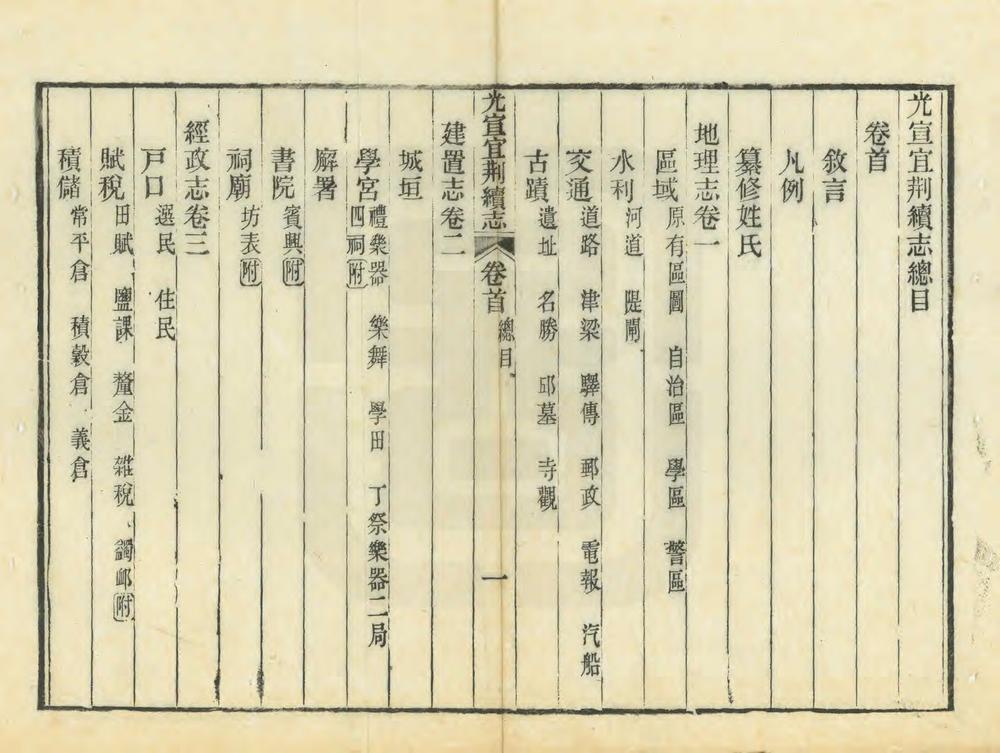 光宣宜荆續志總目
卷首
敘言
凡例
纂修姓氏
地理志卷一
區域 原有區圖 自治區 學區 警區
水利 河道 隄閘
交通 道路 津梁 驛傳 郵政 電報 汽船
古蹟 遺址 名勝 邱墓 寺觀
光宣宜荆續志 卷首 總目 一
建置志卷二
城垣
學宮 禮樂器 樂舞 學田 丁祭樂器二局
四祠附
廨署
書院 賓興附
祠廟 坊表附
經政志卷三
戸口 選民 住民
賦稅 田賦 鹽課 釐金 雜稅 蠲邮附
積儲 常平倉 積穀倉 義倉